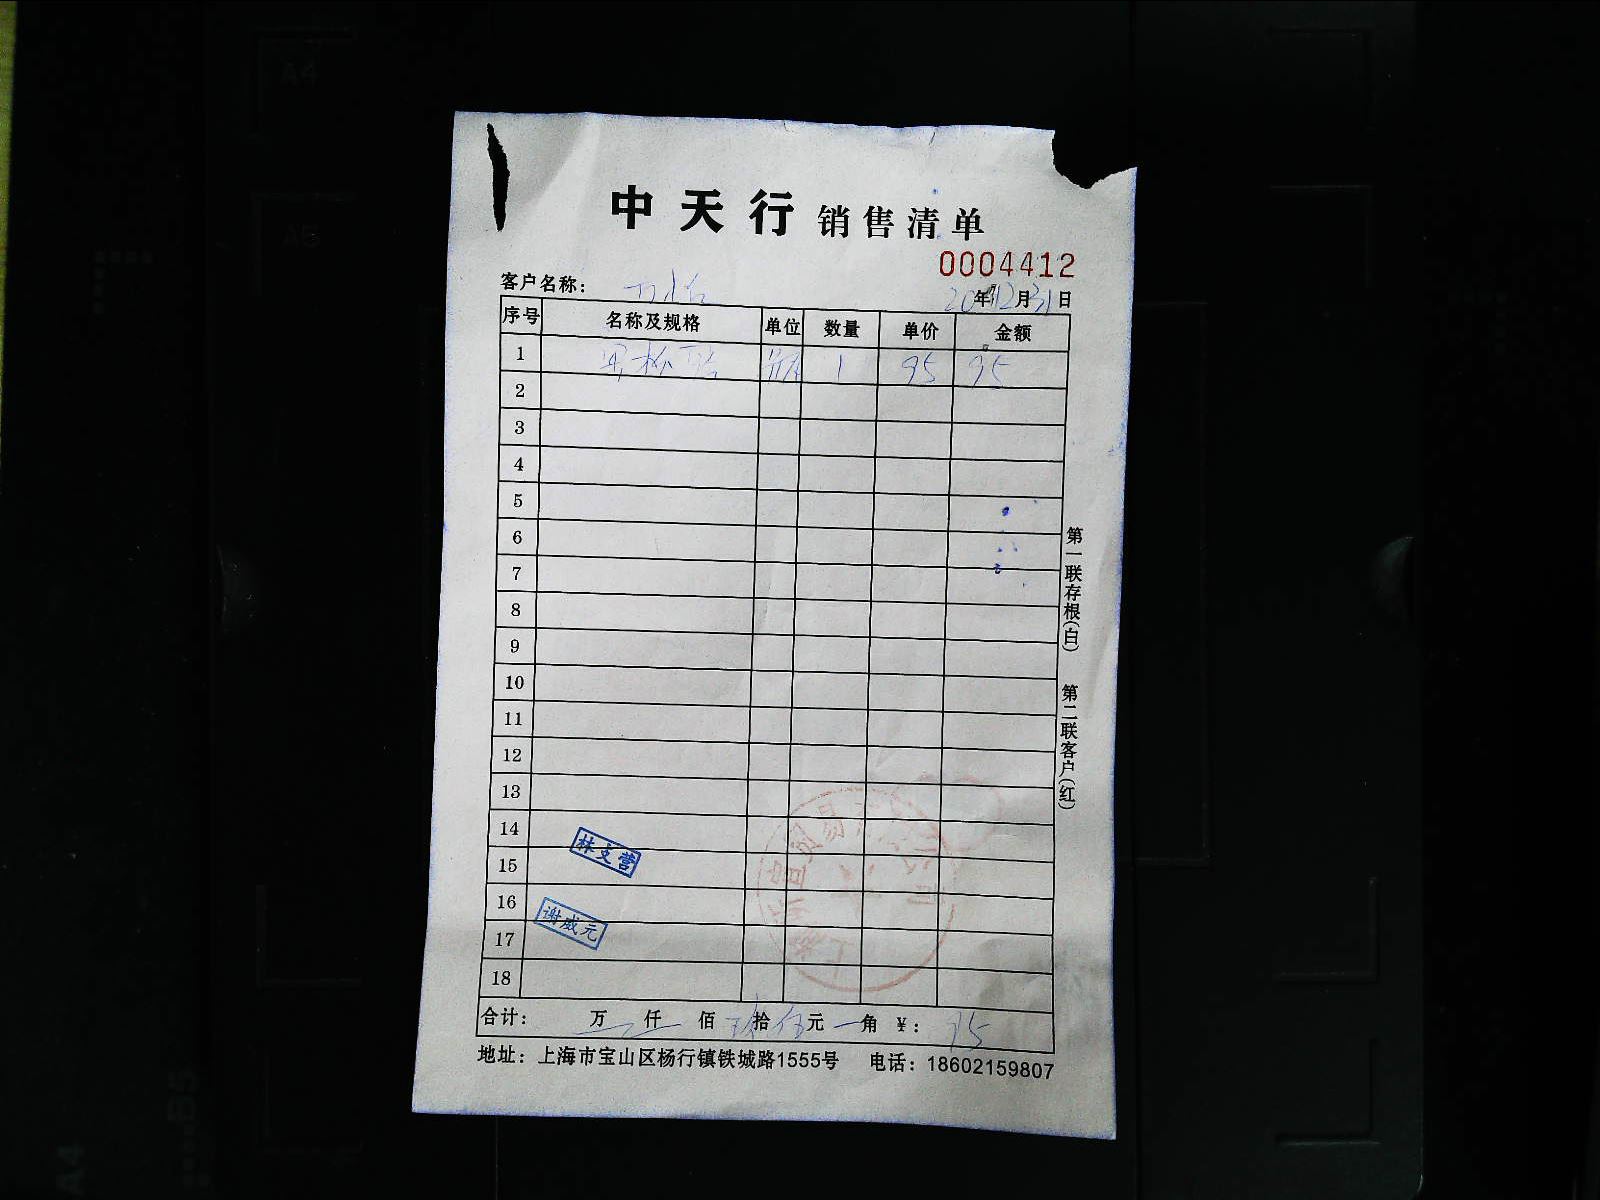 中天行 销售清单
0004412
客户名称:
年12月31日
序号 名称及规格 单位 数量 单价 金额
1 瓶 1 95 95
2
3
4
5
6
7
8
9
10
11
12
13
14
15
16
17
18
林文营
谢威元
合计: 万 仟 佰 拾 伍元 角 ¥: 95
地址: 上海市宝山区杨行镇铁城路1555号 电话: 18602159807
第一联存根(白) 第二联客户(红)